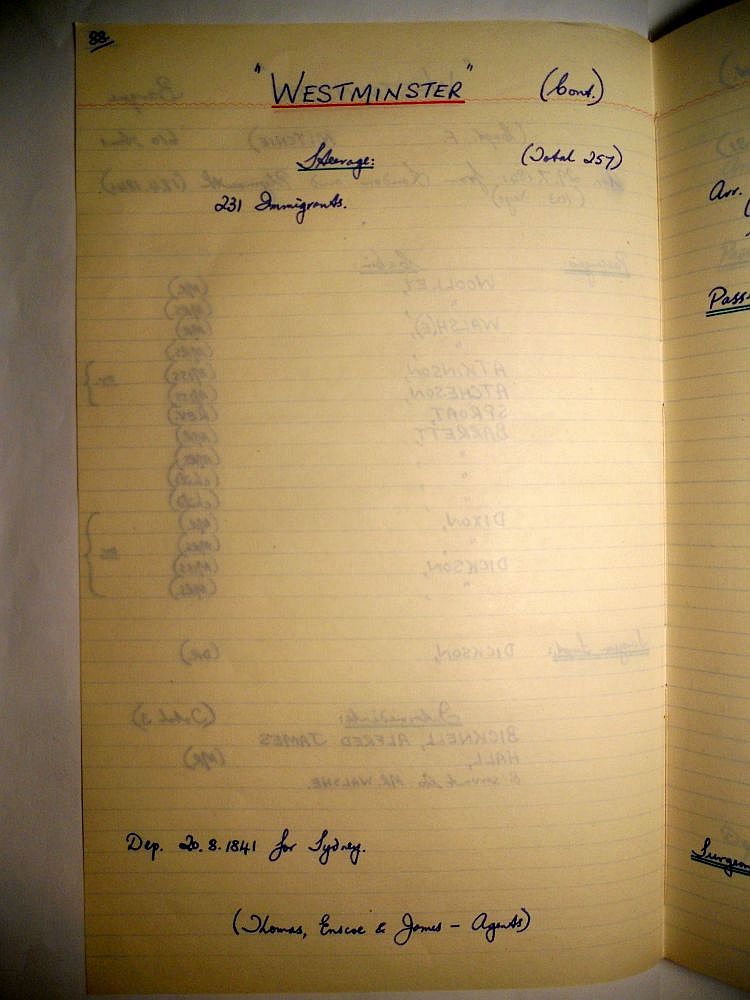 88.
"WESTMINSTER" (Cont.)
Steerage: (Total 257)
231 Immigrants.
Dep. 20.8.1841 for Sydney.
(Thomas, Enscoe & James - Agents)
Arr.
Pass
Surgeon